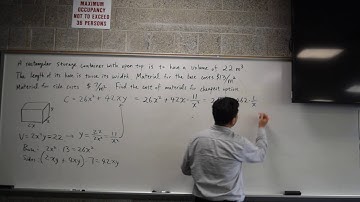 MAXIMUM
OCCUPANCY
NOT TO EXCEED
36 PERSONS
A rectangular storage container with open top is to have a volume of 22 m³
The length of its base is twice its width. Material for the base costs $13/m²
Material for sides costs $7/m². Find the cost of materials for cheapest option.
C = 26x² + 42xy = 26x² + 42x · 11/x² =
V = 2x²y = 22 → y = 22/2x² = 11/x²
Base: 2x² · 13 = 26x²
Sides: (2xy + 4xy) · 7 = 42xy
y
2x